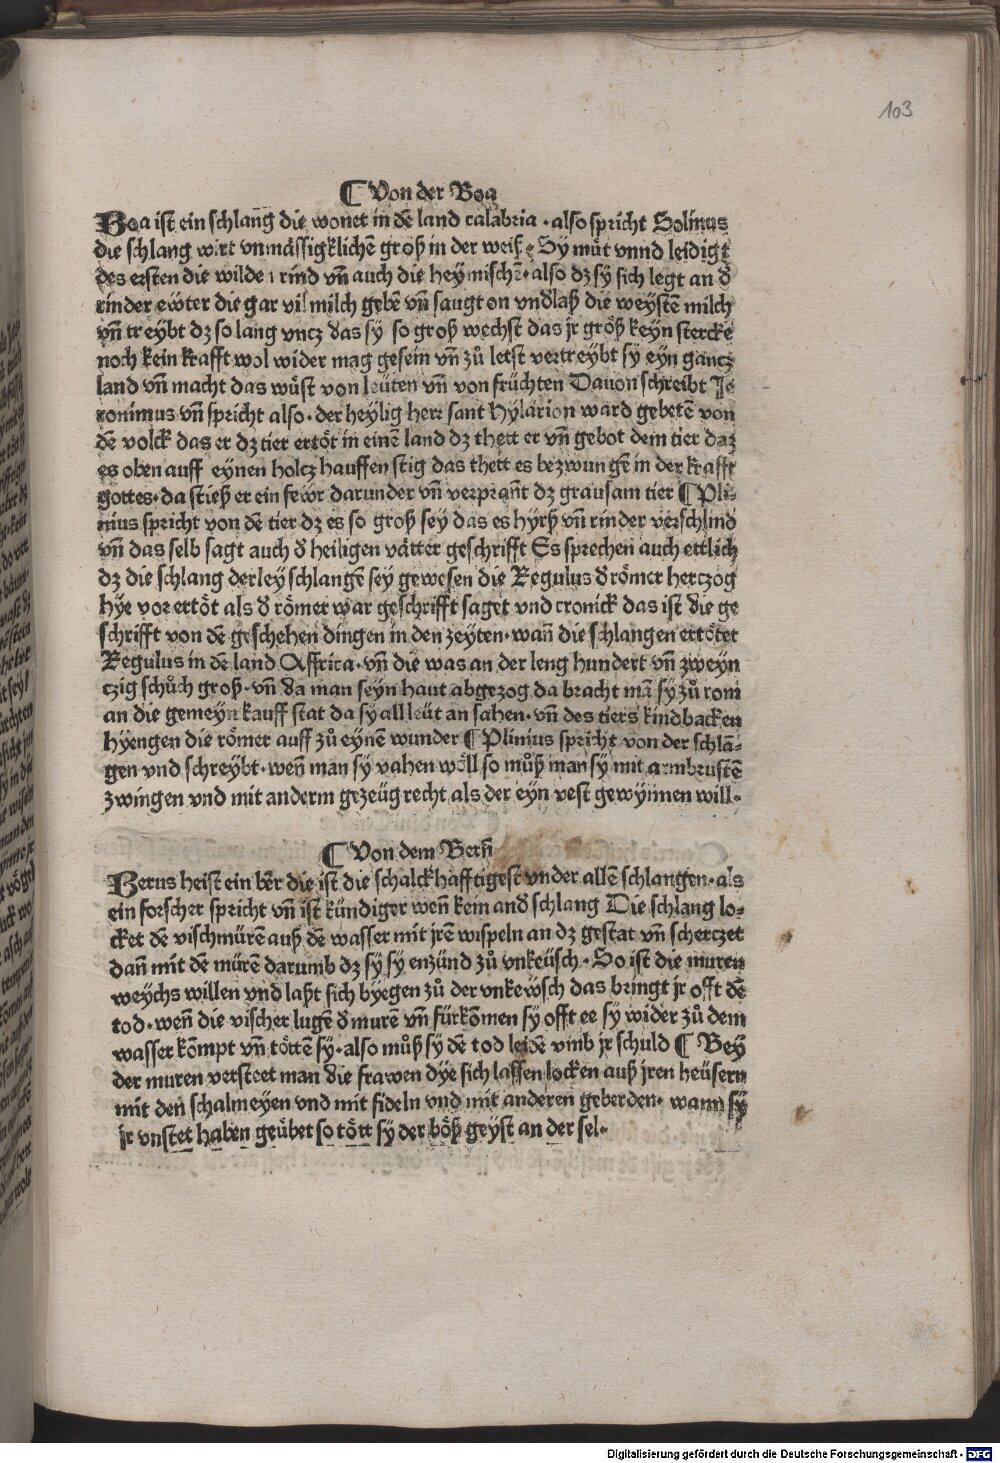 103
¶ Von der Boa
Boa ist ein schlang die wonet in dē land calabria · also spricht Solinus
die schlang wirt vnmässigklichē groß in der weiß Sy müt vnnd leidigt
des ersten die wilden rind vñ auch die heymischē · also dz sy sich legt an d̄
rinder ewter die gar vil milch gebē vñ saugt on vnd̄laß die weystē milch
vñ treybt dz so lang vncz das sy so groß wechst das jr größ keyn stercke
noch kein krafft wol wider mag gesein vñ zů letst vertreybt sy eyn gancz
land vñ macht das wüst von leüten vñ von früchten Dauon schreibt Je
ronimus vñ spricht also · der heylig herr sant Hylarion ward gebetē von
dē volck das er dz tier ertöt in einē land dz thett er vñ gebot dem tier daz
es oben auff eynen holcz hauffen stig das thett es bezwungē in der krafft
gottes · da stieß er ein fewr darunder vñ verprañt dz grausam tier ¶ Pli-
nius spricht von dē tier dz es so groß sey das es hyrß vñ rinder verschlind
vñ das selb sagt auch d̄ heiligen vätter geschrifft Es sprechen auch ettlich
dz die schlang derley schlangē sey gewesen die Regulus d̄ römer herczog
hye vor ertöt als d̄ römer war geschrifft saget vnd cronick das ist die ge
schrifft von dē geschehen dingen in den zeyten · wañ die schlangen ertötet
Regulus in dē land Affrica · vñ die was an der leng hundert vñ zweyn
czig schůch groß · vñ da man seyn haut abgezog da bracht mā sy zů rom
an die gemeyn kauff stat da sy all leüt an sahen · vñ des tiers kindbacken
hyengen die römer auff zů eynē wunder ¶ Plinius spricht von der schlā-
gen vnd schreybt · weñ man sy vahen wöll so můß man sy mit armbrustē
zwingen vnd mit anderm gezeüg recht als der eyn vest gewynnen will ·
¶ Von dem Berñ
Berus heist ein ber̄ die ist die schalckhafftigest vnder allē schlangen · als
ein forscher spricht vñ ist kündiger weñ kein and̄ schlang Die schlang lo-
cket dē vischmürē auß dē wasser mit jrē wispeln an dz gestat vñ scherczet
dañ mit dē mürē darumb dz sy sy enzünd zů vnkeüsch · So ist die muren
weychs willen vnd laßt sich byegen zů der vnkewsch das bringt jr offt dē
tod · weñ die vischer lugē d̄ murē vñ fürkōmen sy offt ee sy wider zů dem
wasser kōmpt vñ töttē sy · also můß sy dē tod leidē vmb jr schuld ¶ Bey
der muren versteet man die frawen dye sich lassen locken auß jren heüsern
mit den schalmeyen vnd mit fideln vnd mit anderen geberden · wann sy
jr vnstet haben geübet so tött sy der böß geyst an der sel ·
Digitalisierung gefördert durch die Deutsche Forschungsgemeinschaft - DFG